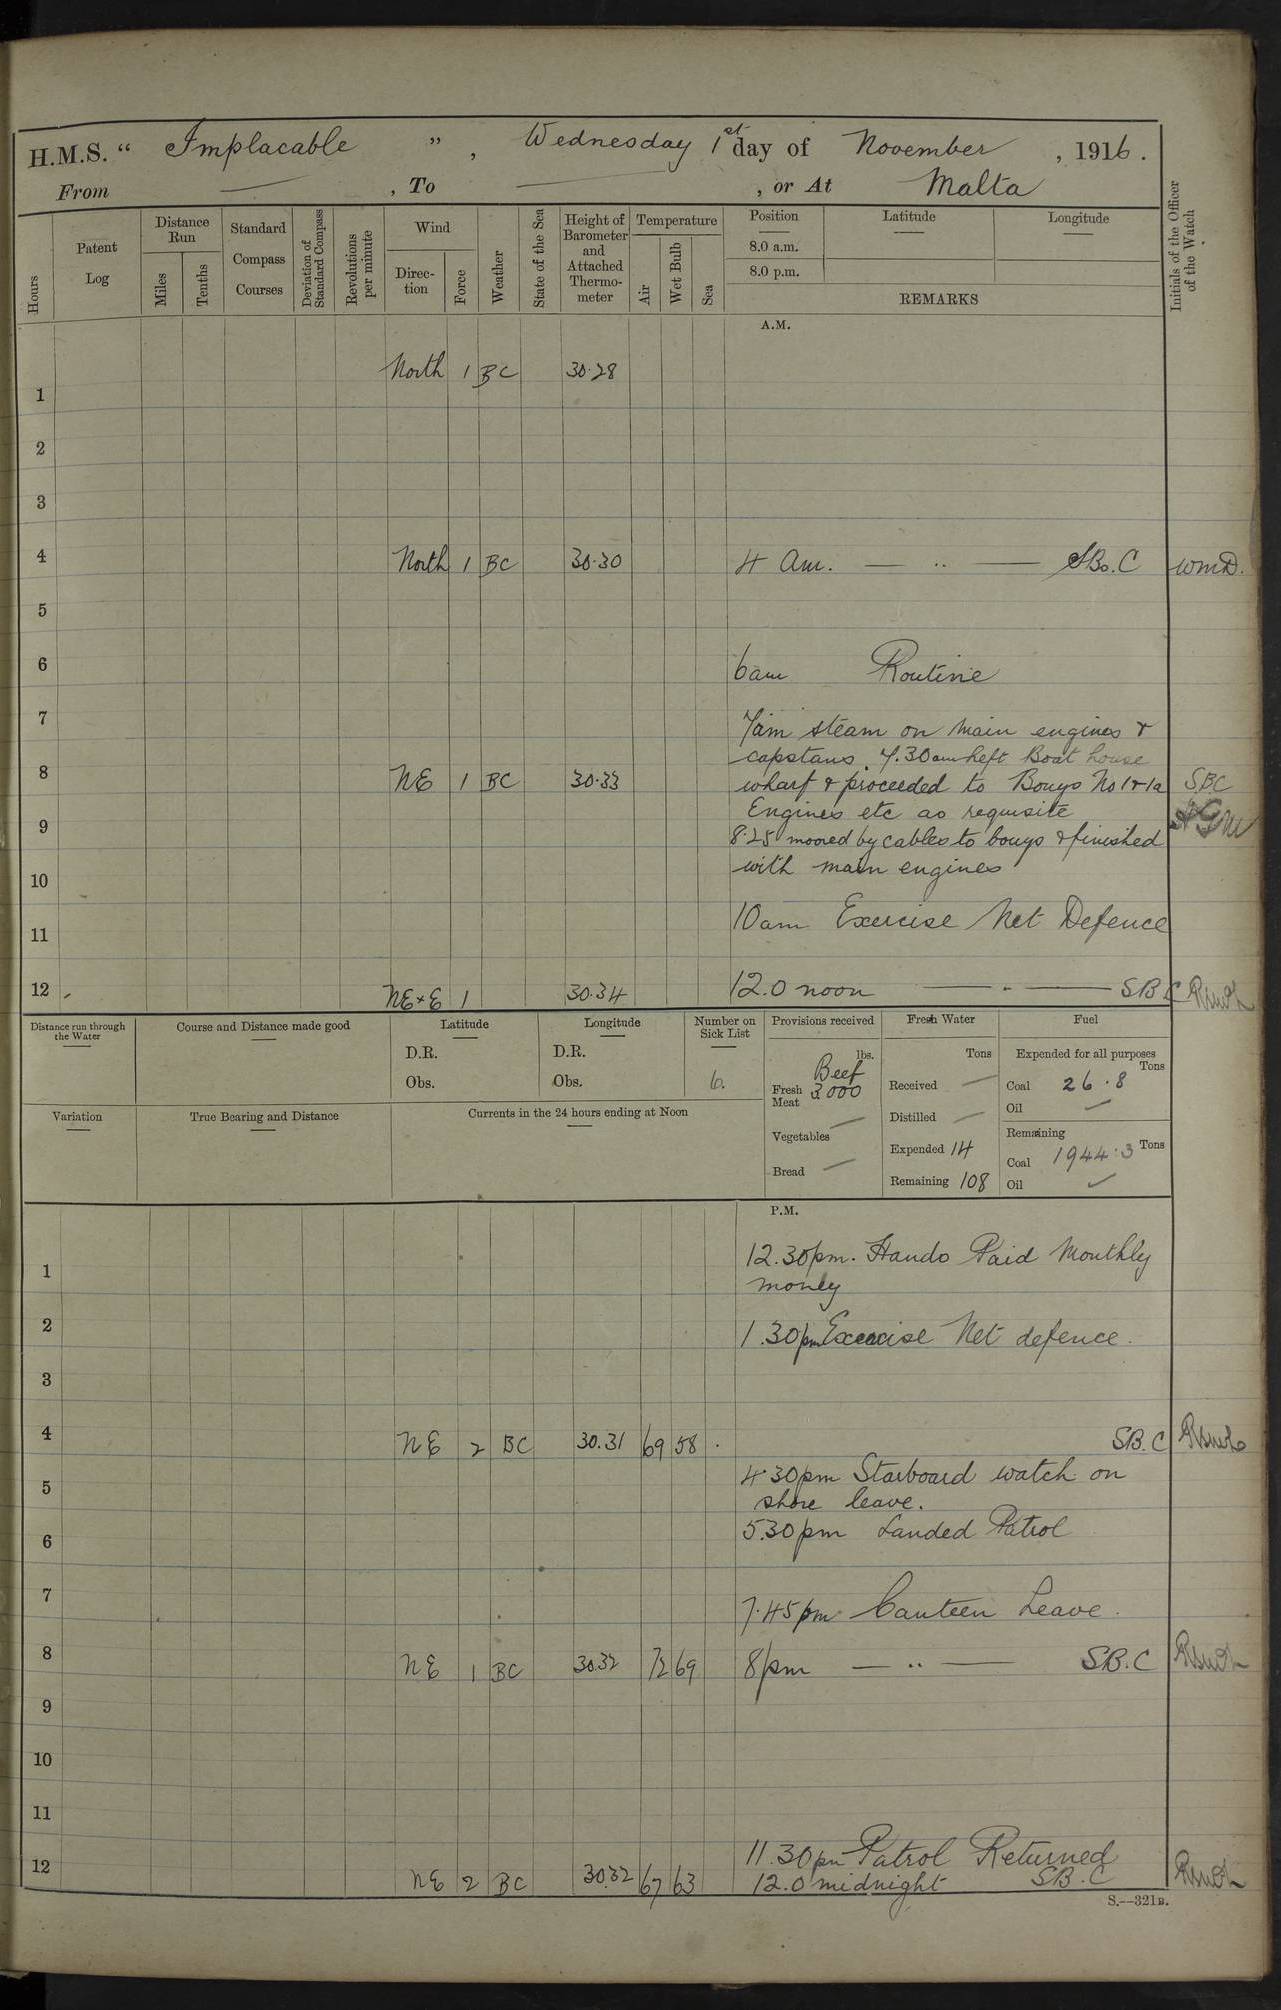 H.M.S. “ Implacable ” , Wednesday 1st day of November , 1916.
From — , To — , or At Malta
Hours
Patent Log
Distance Run
Miles
Tenths
Standard Compass Courses
Deviation of Standard Compass
Revolutions per minute
Wind
Direction
Force
Weather
State of the Sea
Height of Barometer and Attached Thermometer
Temperature
Air
Wet Bulb
Sea
Position
8.0 a.m.
8.0 p.m.
Latitude
Longitude
REMARKS
Initials of the Officer of the Watch
A.M.
North 1 BC 30.28
1
2
3
4 North 1 BC 30.30 4 Am. — " — SBo. C WMD.
5
6 6am Routine
7 7am steam on main engines &
capstans. 7.30am Left Boat house
8 NE 1 BC 30.33 wharf & proceeded to Bouys No 1 & 1a SBC
Engines etc as requisite
9 8.25 moored by cables to bouys & finished
10 with main engines
11 10am Exercise Net Defence
12 NE×E 1 30.34 12.0 noon — " — SBC
Distance run through the Water
Course and Distance made good
Latitude
D.R.
Obs.
Longitude
D.R.
Obs.
Number on Sick List
6.
Variation
True Bearing and Distance
Currents in the 24 hours ending at Noon
Provisions received
lbs.
Beef
Fresh Meat 3000
Vegetables —
Bread —
Fresh Water
Tons
Received —
Distilled —
Expended 14
Remaining 108
Fuel
Expended for all purposes
Tons
Coal 26.8
Oil —
Remaining
Coal 1944.3 Tons
Oil —
P.M.
12.30pm. Hands Paid Monthly
1 money
2 1.30pm Exercise Net defence.
3
4 NE 2 BC 30.31 69 58 SB.C
4.30pm Starboard watch on
5 shore leave.
6 5.30pm Landed Patrol
7 7.45pm Canteen Leave.
8 NE 1 BC 30.32 72 69 8pm — " — SB.C
9
10
11
11.30pm Patrol Returned
12 NE 2 BC 30.32 67 63 12.0 midnight SB.C
S.—321B.